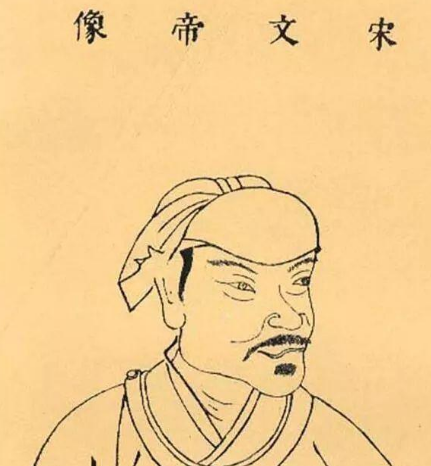 宋文帝像